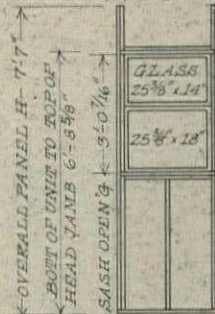 OVERALL PANEL H- 7'-7"
BOTT OF UNIT TO TOP OF
HEAD JAMB 6'-8 5/8"
SASH OPEN'G 3'-0 7/16"
GLASS
25 3/8" x 14"
25 3/8" x 18"